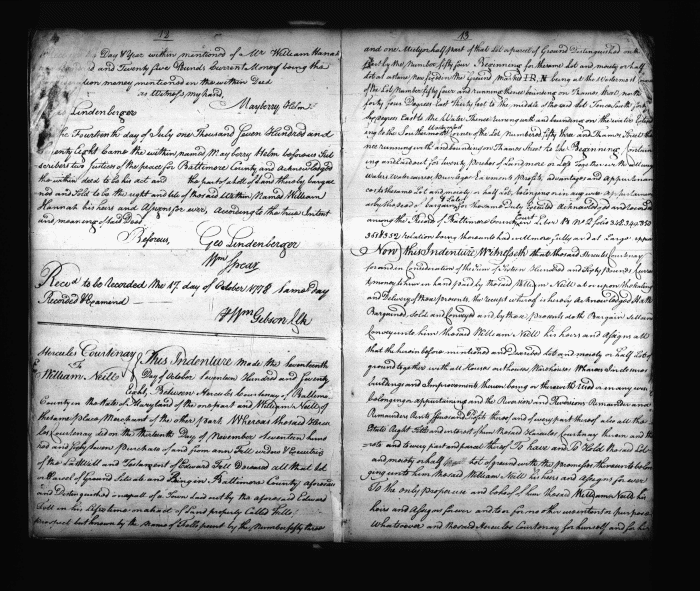 12
Day & Year within mentioned of Mr William Hannah
and Twenty five Pounds Current Money being the
tion money mentioned in the within Deed
as Witness my hand
Mayberry Helm
Lindenberger
the Fourteenth day of July one Thousand Seven Hundred and
enty Eight Came the within named Mayberry Helm before us Sub
scribers two Justices of the peace for Baltimore County and acknowledged
the within deed to be his act and the parts of lot of Land thereby bargai
ned and Sold to be the right and title of the said within Named William
Hannah his heirs and Assigns for ever, According to the true Intent
and meaning of said Deed
Before us, Geo Lindenberger
Wm Spear
Recd to be Recorded the 17 day of October 1778 Same day
Recorded & Examined
Wm Gibson Clk
Hercules Courtenay
To
William Neill
This Indenture made the Seventeenth
Day of October Seventeen Hundred and Seventy
Eight, Between Hercules Courtenay of Baltimo
County in the State of Maryland of the one part and William Neill of
the same place Merchant of the other part. Whereas the said Hercu
les Courtenay did on the Thirteenth Day of November Seventeen hun
and fifty Seven Purchase of and from Fell widow & Executrix
of the Last Will and Testament of Edward Fell Deceased all that lot
or Parcel of Ground Situate and Being in Baltimore County aforesaid
and Distinguished on a plat of a Town Laid out by the aforesaid Edward
Fell in his Life time on a tract of Land property Called Fells
prospect but known by the Name of Fells point by the Number fifty three
13
and one Moiety or half part of that Lot or parcel of Ground Distinguished on the
plat by the Number fifty four Beginning for the same lot and moiety or half
lot at a stone now fixed in the Ground Marked I R N being at the Western
of the Lot Number fifty four and running thence bounding on Thames Street north
forty four Degrees East Thirty feet to the middle of the said lot Thence South forty
degrees East to the Water Thence running with and bounding on the water
ing to the Southermost Corner of the Lot Numbered fifty three and Thames Street
ce running with and bounding on Thames Street to the Beginning Contain
ing and laid out for Twenty Perches of Land more or less Together with the all ways
waters Water courses Privileges Easments Profits advantages and appurtenan
ces to the same Lot and moiety or half Lot, belonging or in any wise appertaining
as by the deed of bargain & Sale for the same Duly Executed Acknowledged and
among the Records of Baltimore County Court in Liber B. No 2 folio 348 349 350
351 & 352 relation being thereunto had will more fully and at Large appear
Now this Indenture Witnesseth that the said Hercules Courtenay
for and in Consideration of the Sum of Sixteen Hundred and Fifty Pounds Curren
money to him in hand paid by the said William Neill at or upon the Sealing
and Delivery of these Presents the receipt whereof is hereby acknowledged Hath
Bargained, Sold and Conveyed and by these Presents doth Bargain Sell and
Convey unto him the said William Neill his heirs and assigns all
that the herein before mentioned and described Lot and moiety or half Lot of
ground together with all Houses outhouses, Warehouses Wharves Landings
buildings and Improvements thereon being or thereunto in any wise
belonging or appertaining and the Reversion and Reversions Remainder and
Remainders Rents Issues and Profits thereof and of every part thereof also all that
Estate Right Title and interest of him the said Hercules Courtenay therein and
reto and to every part and parcel thereof To have and To Hold the said Lot
and moiety or half lot of ground with the Premises thereunto belon
ging unto him the said William Neill his heirs and assigns for ever
To the only proper use and behoof of him the said William Neill his
heirs and Assigns for ever and to or for no other use intent or purpose
Whatsoever and the said Hercules Courtenay for himself and for his